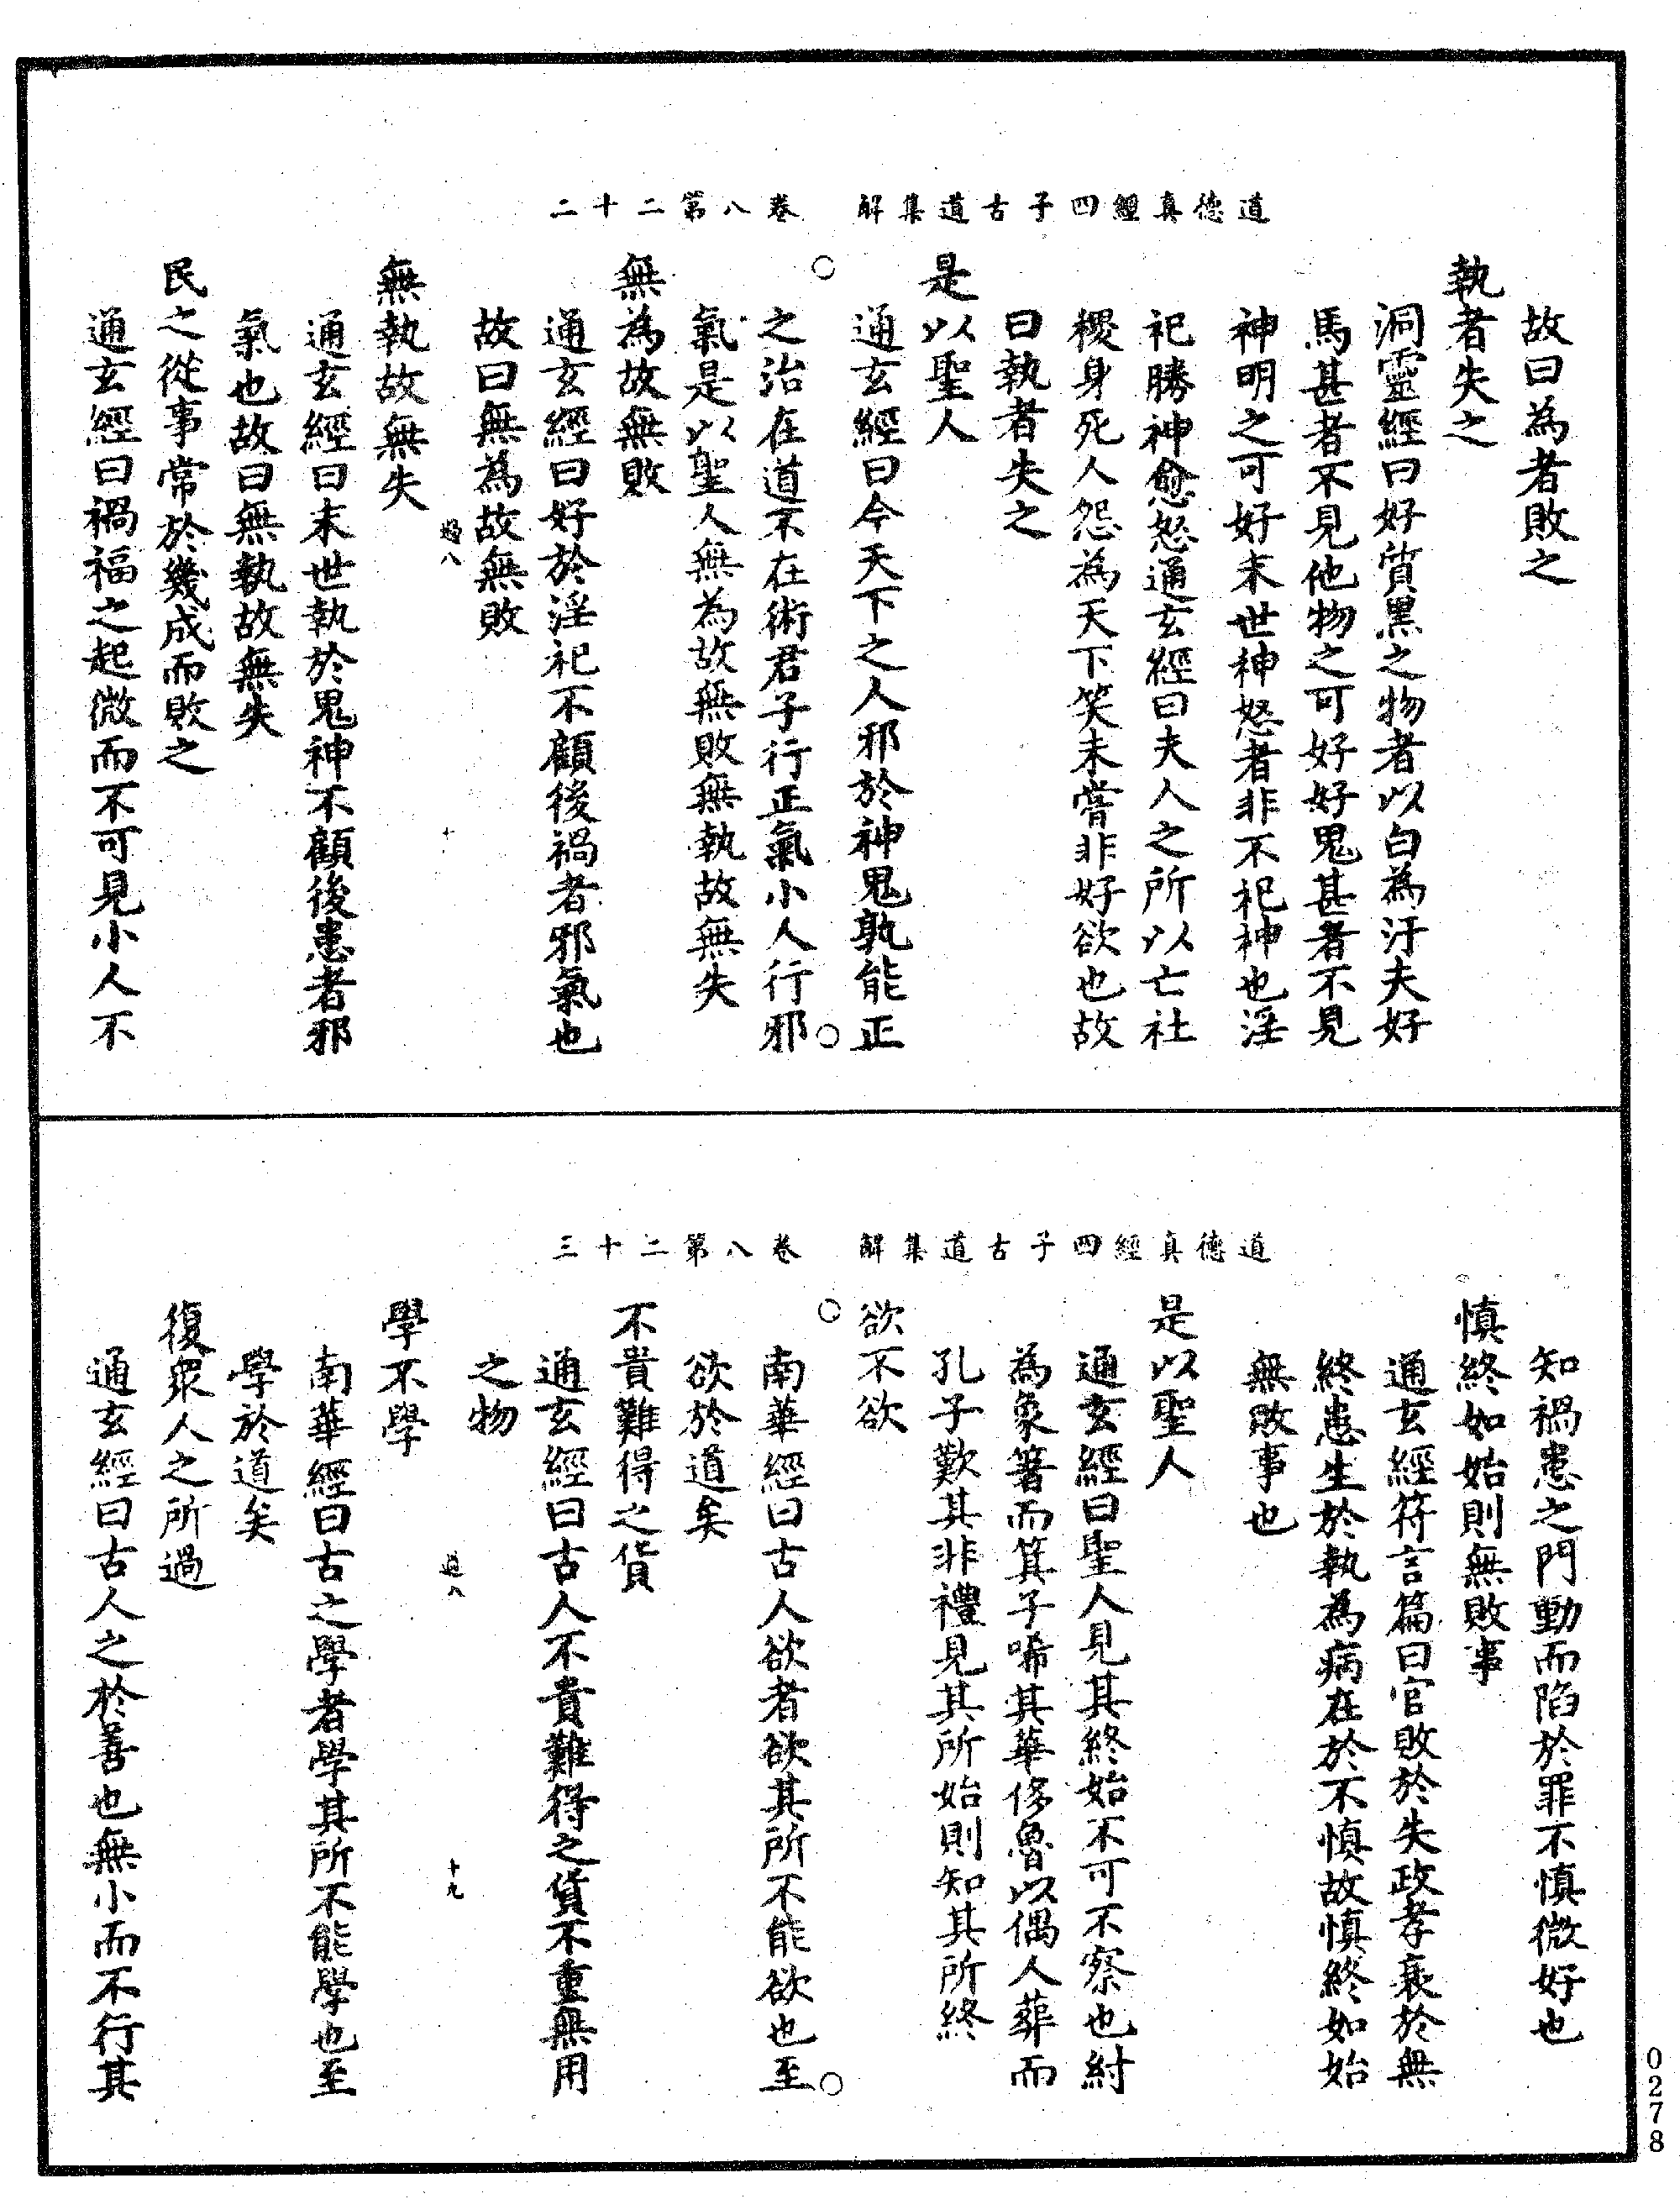 道德真經四子古道集解　卷八第二十二
故曰為者敗之
執者失之
洞靈經曰好質黑之物者以白為汙夫好
馬甚者不見他物之可好好鬼甚者不見
神明之可好末世神怒者非不祀神也淫
祀勝神愈怒通玄經曰夫人之所以亡社
稷身死人怨為天下笑未嘗非好欲也故
曰執者失之
是以聖人
通玄經曰今天下之人邪於神鬼孰能正
之治在道不在術君子行正氣小人行邪
氣是以聖人無為故無敗無執故無失
無為故無敗
通玄經曰好於淫祀不顧後禍者邪氣也
故曰無為故無敗
無執故無失
通玄經曰末世執於鬼神不顧後患者邪
氣也故曰無執故無失
民之從事常於幾成而敗之
通玄經曰禍福之起微而不可見小人不
道德真經四子古道集解　卷八第二十三
知禍患之門動而陷於罪不慎微好也
慎終如始則無敗事
通玄經符言篇曰官敗於失政孝衰於無
終患生於執為病在於不慎故慎終如始
無敗事也
是以聖人
通玄經曰聖人見其終始不可不察也紂
為象箸而箕子唏其華侈魯以偶人葬而
孔子歎其非禮見其所始則知其所終
欲不欲
南華經曰古人欲者欲其所不能欲也至
欲於道矣
不貴難得之貨
通玄經曰古人不貴難得之貨不重無用
之物
十九
學不學
南華經曰古之學者學其所不能學也至
學於道矣
復眾人之所過
通玄經曰古人之於善也無小而不行其
0278